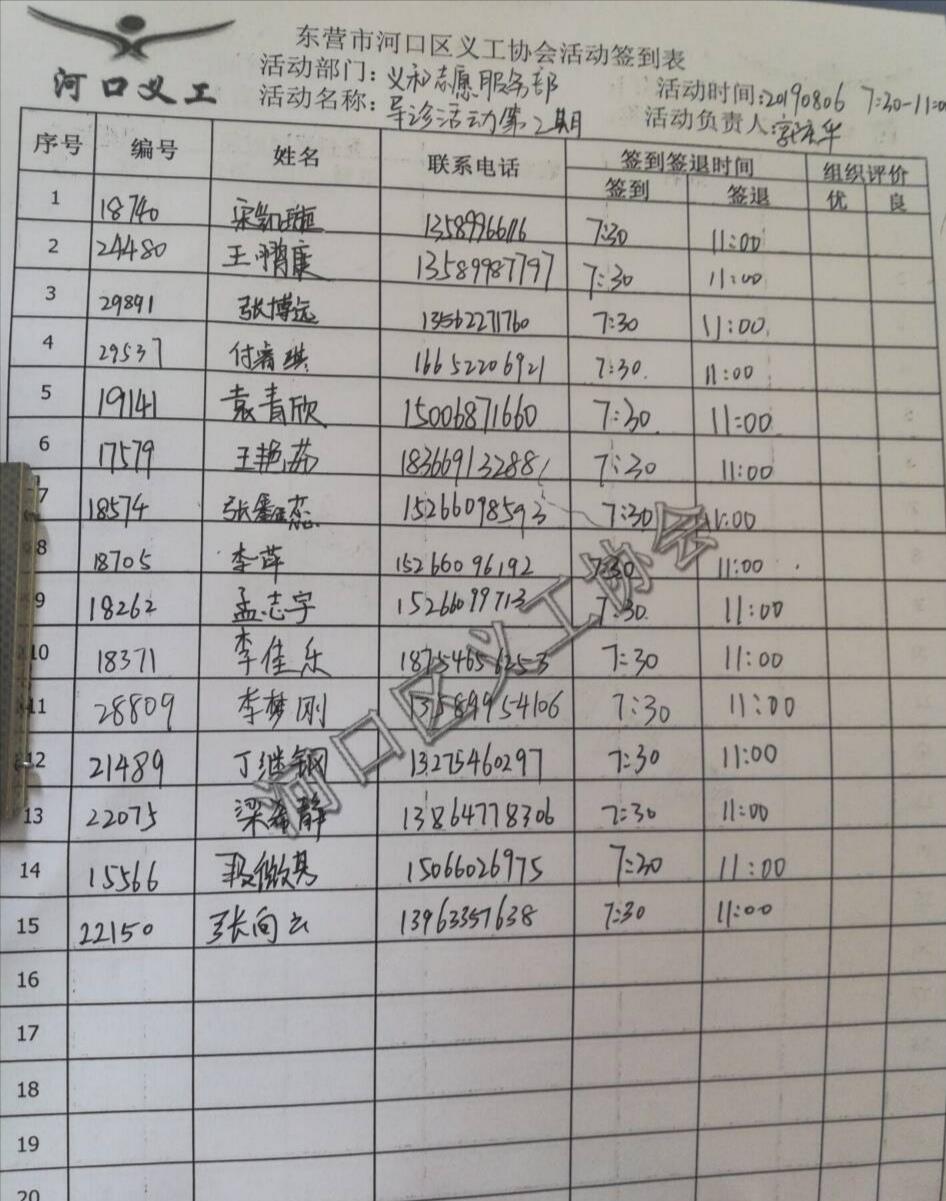 河口义工
东营市河口区义工协会活动签到表
活动部门：义和志愿服务部
活动时间：20190806 7:30-11:00
活动名称：导诊活动第2期
活动负责人：
序号 编号 姓名 联系电话 签到签退时间 组织评价
签到 签退 优 良
1 18740 13589966116 7:30 11:00
2 24480 王鹏康 13589987797 7:30 11:00
3 29891 张博远 13562271760 7:30 11:00
4 29537 付睿琪 16652206921 7:30 11:00
5 19141 袁青欣 15006871660 7:30 11:00
6 17579 王艳芬 18366913288 7:30 11:00
7 18574 15266098593 7:30 11:00
8 18705 李萍 15266096192 7:30 11:00
9 18262 孟志宇 15266099713 7:30 11:00
10 18371 李佳乐 18754656253 7:30 11:00
11 28809 李梦刚 13589954106 7:30 11:00
12 21489 丁继钢 13275460297 7:30 11:00
13 22075 13864778306 7:30 11:00
14 15566 15066026975 7:30 11:00
15 22150 张向云 13963357638 7:30 11:00
16
17
18
19
20
河口区义工协会